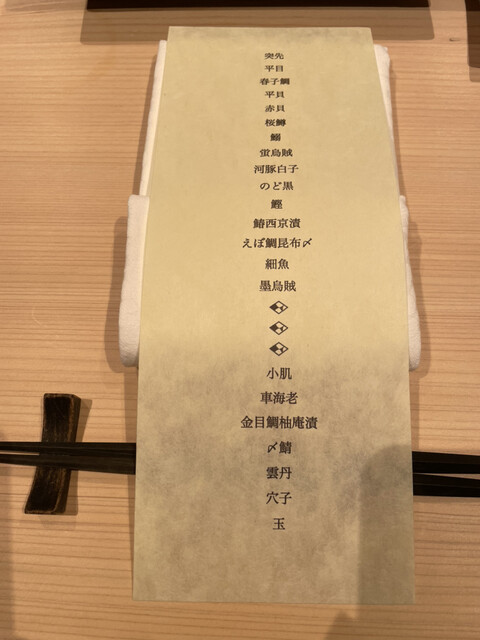 突先
平目
春子鯛
平貝
赤貝
桜鱒
鰯
蛍烏賊
河豚白子
のど黒
鰹
鰆西京漬
えぼ鯛昆布〆
細魚
墨烏賊
小肌
車海老
金目鯛柚庵漬
〆鯖
雲丹
穴子
玉